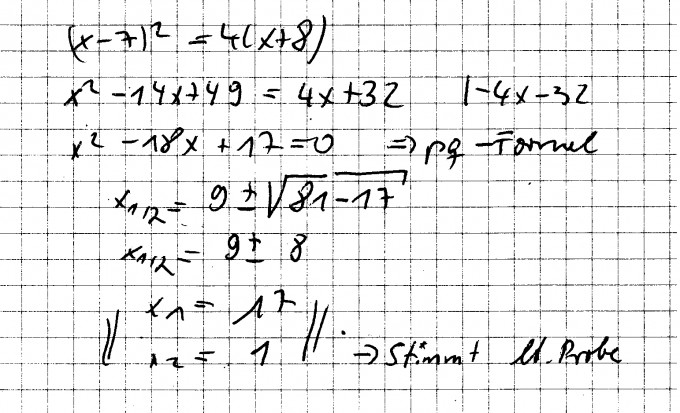 (x-7)² = 4(x+8)
x² - 14x + 49 = 4x + 32 |-4x-32
x² - 18x + 17 = 0 => pq-Formel
x₁/₂ = 9 ± √81-17
x₁/₂ = 9 ± 8
|| x₁ = 17
x₂ = 1 ||. → Stimmt lt. Probe